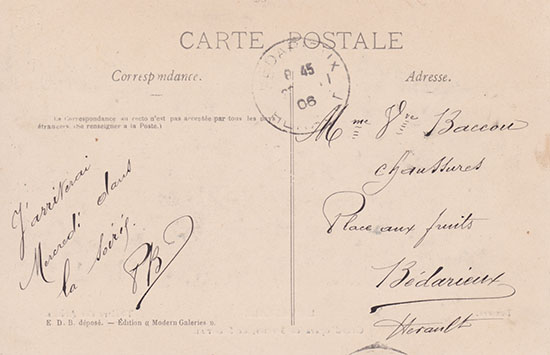 CARTE POSTALE
Correspondance.
La Correspondance au recto n'est pas acceptée par tous les pays
étrangers. (Se renseigner à la Poste.)
J'arriverai
Mercredi dans
la soirée
PB
E. D. B. déposé. — Édition « Modern Galeries ».
BEDARIEUX
45
06
Adresse.
Mme Vve Baccou
chaussures
Place aux fruits
Bédarieux
Herault